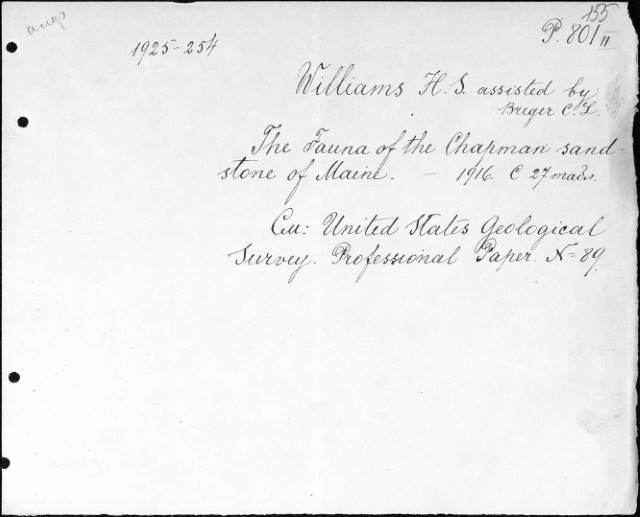 155
P. 801 II
1925-254
Williams H. S. assisted by
Breger C. L.
The Fauna of the Chapman sand-
stone of Maine. – 1916. С 27 табл.
См: United States Geological
Survey. Professional Paper. N=89.